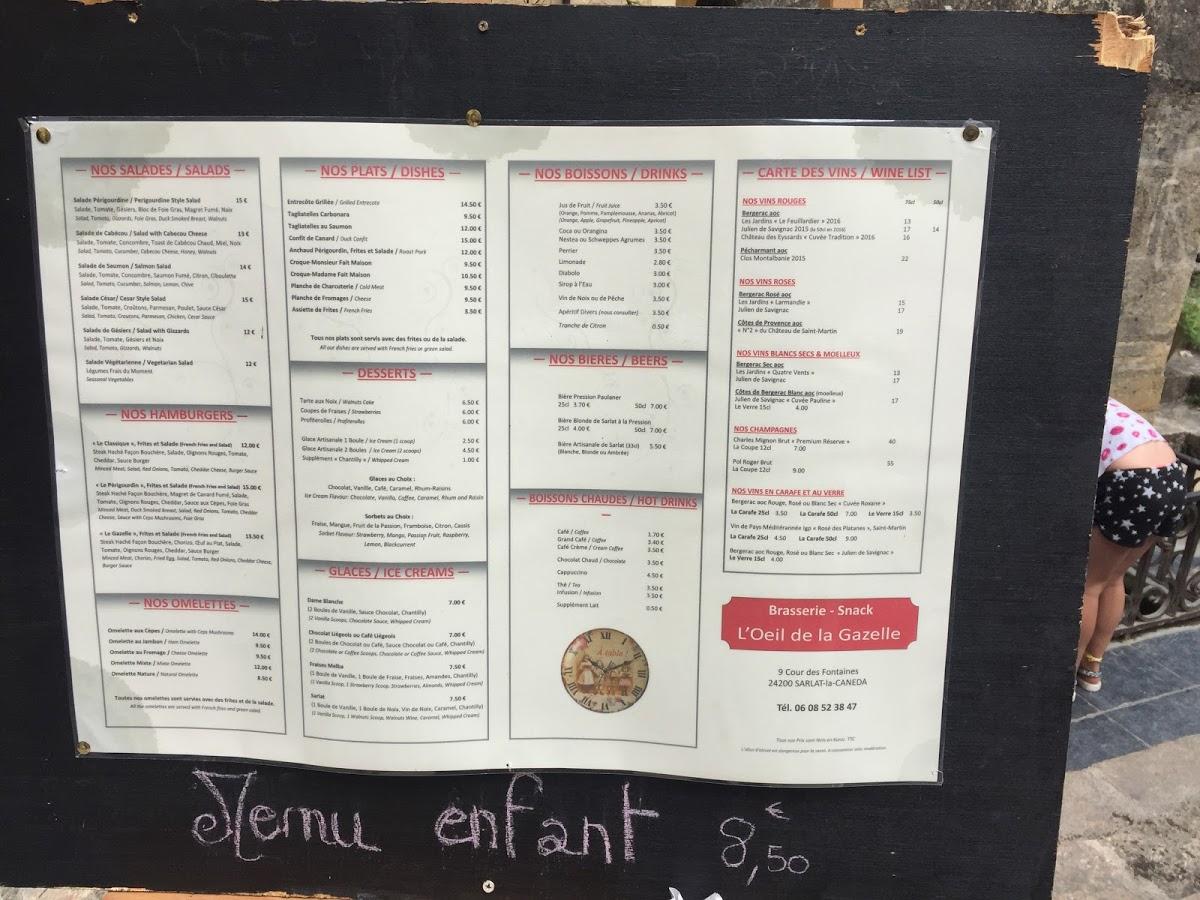 — NOS SALADES / SALADS —
Salade Périgourdine / Perigourdine Style Salad 15 €
Salade, Tomate, Gésiers, Bloc de Foie Gras, Magret Fumé, Noix
Salad, Tomato, Gizzards, Foie Gras, Duck Smoked Breast, Walnuts
Salade de Cabécou / Salad with Cabecou Cheese 13 €
Salade, Tomate, Concombre, Toast de Cabécou Chaud, Miel, Noix
Salad, Tomato, Cucumber, Cabecou Cheese, Honey, Walnuts
Salade de Saumon / Salmon Salad 14 €
Salade, Tomate, Concombre, Saumon Fumé, Citron, Ciboulette
Salad, Tomato, Cucumber, Salmon, Lemon, Chive
Salade César / Cesar Style Salad 15 €
Salade, Tomate, Croûtons, Parmesan, Poulet, Sauce César
Salad, Tomato, Croutons, Parmesan, Chicken, Cesar Sauce
Salade de Gésiers / Salad with Gizzards 12 €
Salade, Tomate, Gésiers et Noix
Salad, Tomato, Gizzards, Walnuts
Salade Végétarienne / Vegetarian Salad 12 €
Légumes Frais du Moment
Seasonal Vegetables
— NOS HAMBURGERS —
« Le Classique », Frites et Salade (French Fries and Salad) 12.00 €
Steak Haché Façon Bouchère, Salade, Oignons Rouges, Tomate,
Cheddar, Sauce Burger
Minced Meat, Salad, Red Onions, Tomato, Cheddar Cheese, Burger Sauce
« Le Périgourdin », Frites et Salade (French Fries and Salad) 15.00 €
Steak Haché Façon Bouchère, Magret de Canard Fumé, Salade,
Tomate, Oignons Rouges, Cheddar, Sauce aux Cèpes, Foie Gras
Minced Meat, Duck Smoked Breast, Salad, Red Onions, Tomato, Cheddar
Cheese, Sauce with Ceps Mushrooms, Foie Gras
« Le Gazelle », Frites et Salade (French Fries and Salad) 13.50 €
Steak Haché Façon Bouchère, Chorizo, Œuf au Plat, Salade,
Tomate, Oignons Rouges, Cheddar, Sauce Burger
Minced Meat, Chorizo, Fried Egg, Salad, Tomato, Red Onions, Cheddar Cheese,
Burger Sauce
— NOS OMELETTES —
Omelette aux Cèpes / Omelette with Ceps Mushrooms 14.00 €
Omelette au Jambon / Ham Omelette 9.50 €
Omelette au Fromage / Cheese Omelette 9.50 €
Omelette Mixte / Mixte Omelette 12.00 €
Omelette Nature / Natural Omelette 8.50 €
Toutes nos omelettes sont servies avec des frites et de la salade.
All the omelettes are served with French fries and green salad.
— NOS PLATS / DISHES —
Entrecôte Grillée / Grilled Entrecote 14.50 €
Tagliatelles Carbonara 9.50 €
Tagliatelles au Saumon 12.00 €
Confit de Canard / Duck Confit 15.00 €
Anchaud Périgourdin, Frites et Salade / Roast Pork 12.00 €
Croque-Monsieur Fait Maison 9.50 €
Croque-Madame Fait Maison 10.50 €
Planche de Charcuterie / Cold Meat 9.50 €
Planche de Fromages / Cheese 9.50 €
Assiette de Frites / French Fries 3.50 €
Tous nos plats sont servis avec des frites ou de la salade.
All our dishes are served with French fries or green salad.
— DESSERTS —
Tarte aux Noix / Walnuts Cake 6.50 €
Coupes de Fraises / Strawberries 6.00 €
Profiterolles / Profiterolles 6.00 €
Glace Artisanale 1 Boule / Ice Cream (1 scoop) 2.50 €
Glace Artisanale 2 Boules / Ice Cream (2 scoops) 4.50 €
Supplément « Chantilly » / Whipped Cream 1.00 €
Glaces au Choix :
Chocolat, Vanille, Café, Caramel, Rhum-Raisins
Ice Cream Flavour: Chocolate, Vanilla, Coffee, Caramel, Rhum and Raisin
Sorbets au Choix :
Fraise, Mangue, Fruit de la Passion, Framboise, Citron, Cassis
Sorbet Flavour: Strawberry, Mango, Passion Fruit, Raspberry,
Lemon, Blackcurrent
— GLACES / ICE CREAMS —
Dame Blanche 7.00 €
(2 Boules de Vanille, Sauce Chocolat, Chantilly)
(2 Vanilla Scoops, Chocolate Sauce, Whipped Cream)
Chocolat Liégeois ou Café Liégeois 7.00 €
(2 Boules de Chocolat ou Café, Sauce Chocolat ou Café, Chantilly)
(2 Chocolate or Coffee Scoops, Chocolate or Coffee Sauce, Whipped Cream)
Fraises Melba 7.50 €
(1 Boule de Vanille, 1 Boule de Fraise, Fraises, Amandes, Chantilly)
(1 Vanilla Scoop, 1 Strawberry Scoop, Strawberries, Almonds, Whipped Cream)
Sarlat 7.50 €
(1 Boule de Vanille, 1 Boule de Noix, Vin de Noix, Caramel, Chantilly)
(1 Vanilla Scoop, 1 Walnuts Scoop, Walnuts Wine, Caramel, Whipped Cream)
— NOS BOISSONS / DRINKS —
Jus de Fruit / Fruit Juice 3.50 €
(Orange, Pomme, Pamplemousse, Ananas, Abricot)
(Orange, Apple, Grapefruit, Pineapple, Apricot)
Coca ou Orangina 3.50 €
Nestea ou Schweppes Agrumes 3.50 €
Perrier 3.50 €
Limonade 2.80 €
Diabolo 3.00 €
Sirop à l'Eau 3.00 €
Vin de Noix ou de Pêche 3.50 €
Apéritif Divers (nous consulter) 3.50 €
Tranche de Citron 0.50 €
— NOS BIERES / BEERS —
Bière Pression Paulaner
25cl 3.70 € 50cl 7.00 €
Bière Blonde de Sarlat à la Pression
25cl 4.00 € 50cl 7.00 €
Bière Artisanale de Sarlat (33cl) 5.50 €
(Blanche, Blonde ou Ambrée)
— BOISSONS CHAUDES / HOT DRINKS
—
Café / Coffee 1.70 €
Grand Café / Coffee 3.40 €
Café Crème / Cream Coffee 3.50 €
Chocolat Chaud / Chocolate 3.50 €
Cappuccino 4.50 €
Thé / Tea 3.50 €
Infusion / Infusion 3.50 €
Supplément Lait 0.50 €
A table !
— CARTE DES VINS / WINE LIST —
NOS VINS ROUGES 75cl 50cl
Bergerac aoc
Les Jardins « Le Feuillardier » 2016 13
Julien de Savignac 2015 (la 50cl en 2016) 17 14
Château des Eyssards « Cuvée Tradition » 2016 16
Pécharmant aoc
Clos Montalbanie 2015 22
NOS VINS ROSES
Bergerac Rosé aoc
Les Jardins « Larmandie » 15
Julien de Savignac 17
Côtes de Provence aoc
« N°2 » du Château de Saint-Martin 19
NOS VINS BLANCS SECS & MOELLEUX
Bergerac Sec aoc
Les Jardins « Quatre Vents » 13
Julien de Savignac 17
Côtes de Bergerac Blanc aoc (moelleux)
Julien de Savignac « Cuvée Pauline » 17
Le Verre 15cl 4.00
NOS CHAMPAGNES
Charles Mignon Brut « Premium Réserve » 40
La Coupe 12cl 7.00
Pol Roger Brut 55
La Coupe 12cl 9.00
NOS VINS EN CARAFE ET AU VERRE
Bergerac aoc Rouge, Rosé ou Blanc Sec « Cuvée Roxane »
La Carafe 25cl 3.50 La Carafe 50cl 7.00 Le Verre 15cl 3.50
Vin de Pays Méditérannée Igp « Rosé des Platanes », Saint-Martin
La Carafe 25cl 4.50 La Carafe 50cl 9.00
Bergerac aoc Rouge, Rosé ou Blanc Sec « Julien de Savignac »
Le Verre 15cl 4.00
Brasserie - Snack
L'Oeil de la Gazelle
9 Cour des Fontaines
24200 SARLAT-la-CANEDA
Tél. 06 08 52 38 47
Tous nos Prix sont Nets en Euros TTC
L'abus d'alcool est dangereux pour la santé. A consommer avec modération.
Menu enfant 8,50 €